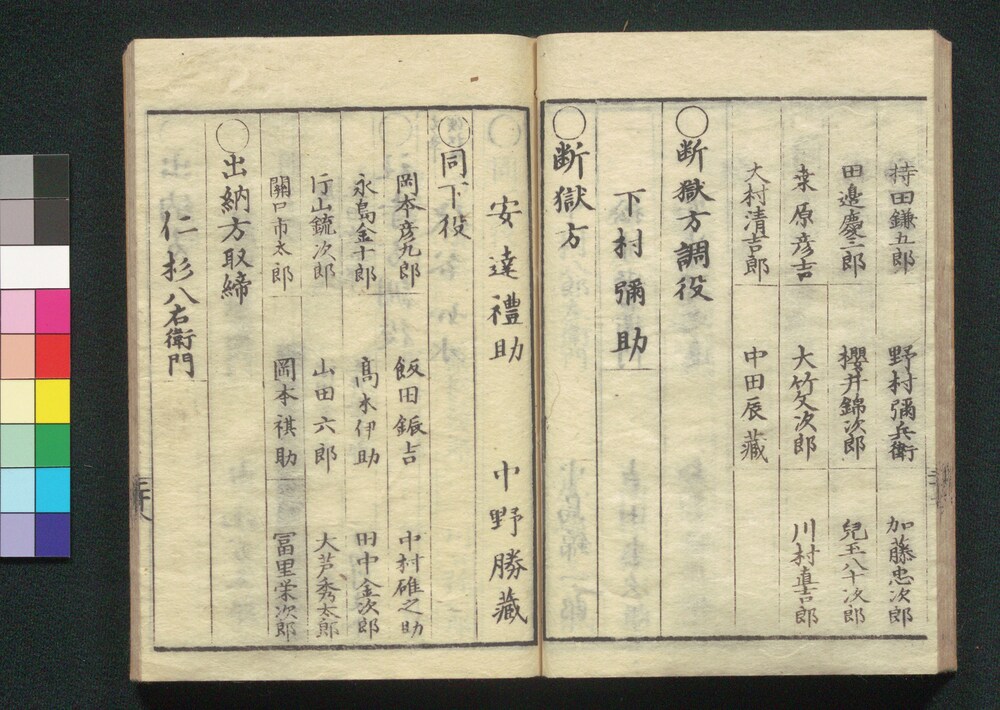 持田鎌五郎 野村彌兵衛 加藤忠次郎
田邉慶三郎 櫻井錦次郎 兒玉八十次郎
桒原彦吉 大竹文次郎 川村直吉郎
大村清吉郎 中田辰藏
○断獄方調役
下村彌助
○断獄方
安達禮助 中野勝藏
○同下役
岡本彦九郎 飯田鋠吉 中村碓之助
永島金十郎 髙木伊助 田中金次郎
行山鋶次郎 山田六郎 大芦秀太郎
關口市太郎 岡本祺助 冨里栄次郎
○出納方取締
仁杉八右衛門